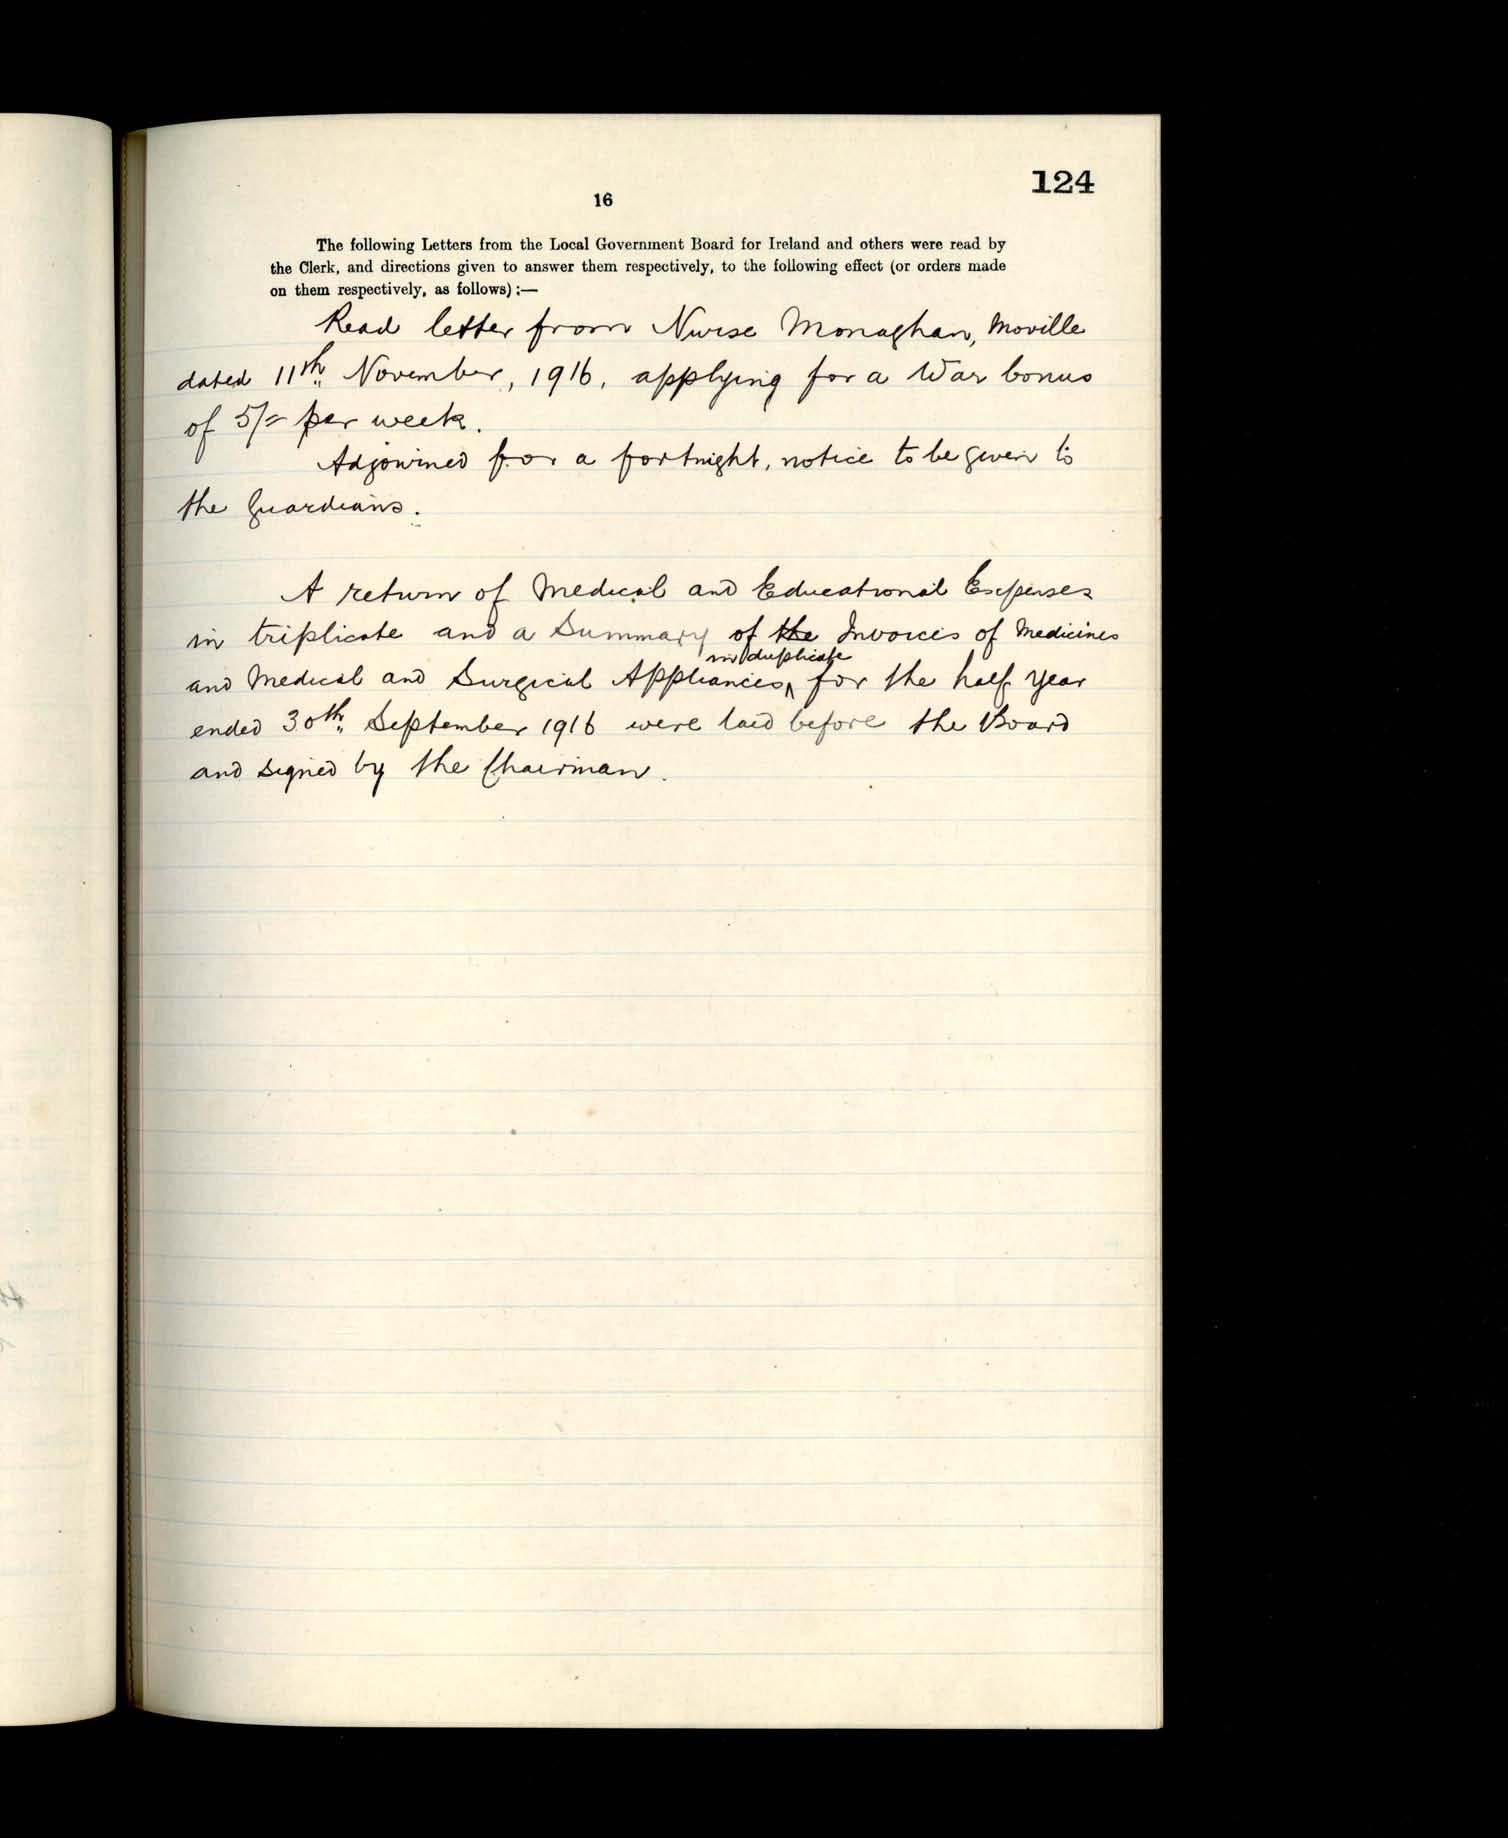 124
16
The following Letters from the Local Government Board for Ireland and others were read by
the Clerk, and directions given to answer them respectively, to the following effect (or orders made
on them respectively, as follows) :—
Read letter from Nurse Monaghan, Moville
dated 11th November, 1916, applying for a War bonus
of 5/= per week.
Adjourned for a fortnight, notice to be given to
the Guardians.
A return of Medical and Educational Expenses
in triplicate and a Summary of the Invoices of Medicines
in duplicate
and Medical and Surgical Appliances ^ for the half year
ended 30th September 1916 were laid before the Board
and signed by the Chairman.